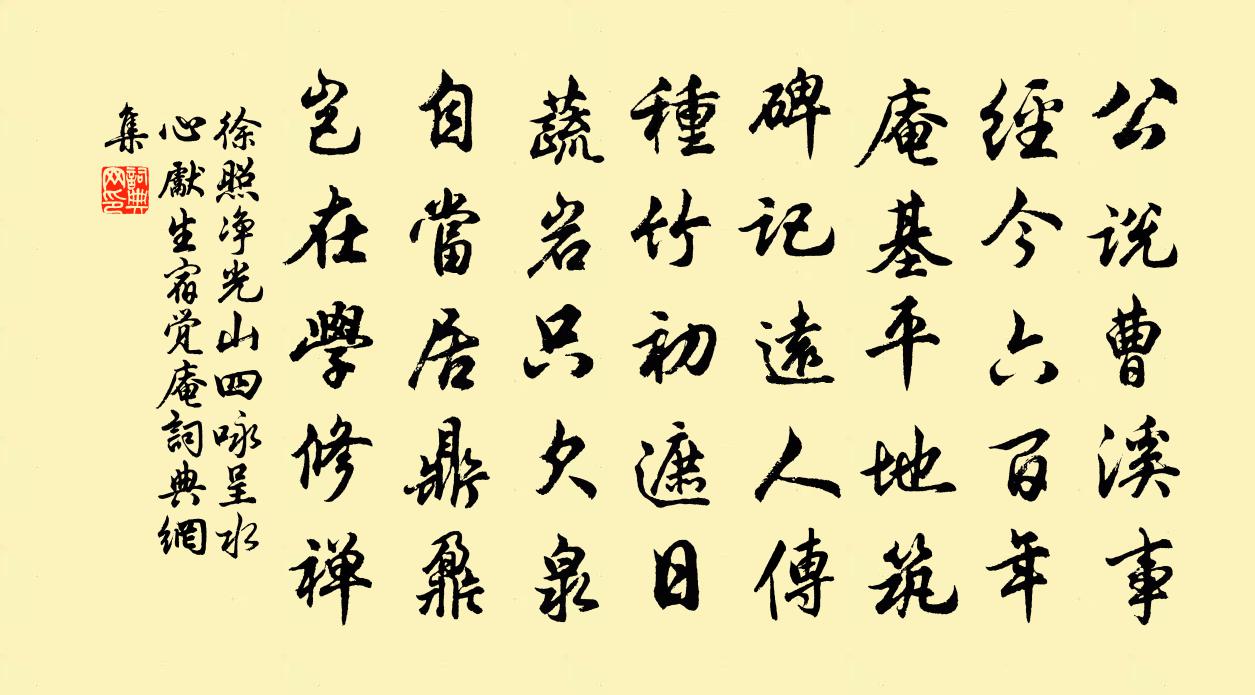 公説曹溪事
經今六百年
庵基平地筑
碑記遠人傳
種竹初遮日
蔬岩只欠泉
自當居鼎鼐
豈在學修禅
徐照净光山四咏呈水
心獻生宿觉庵詞典網
集
詞典网印